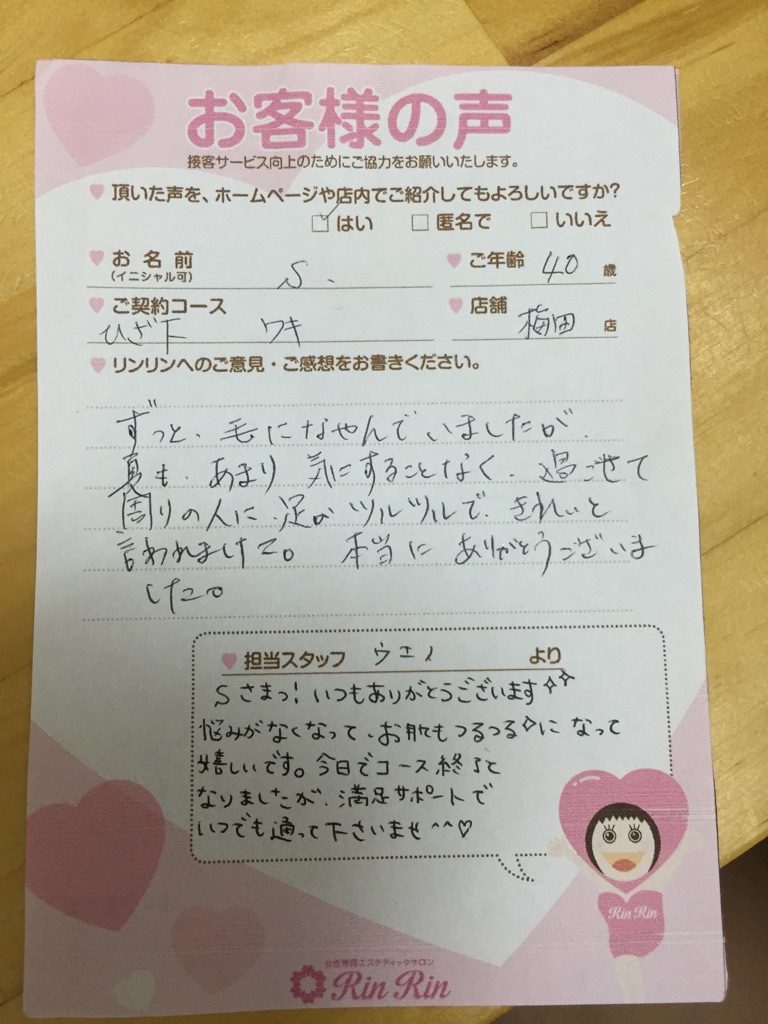 お客様の声
接客サービス向上のためにご協力をお願いいたします。
頂いた声を、ホームページや店内でご紹介してもよろしいですか?
はい 匿名で いいえ
お名前 S. ご年齢 40 歳
(イニシャル可)
ご契約コース 店舗 梅田 店
ひざ下 ワキ
リンリンへのご意見・ご感想をお書きください。
ずっと、毛になやんでいましたが、
夏も、あまり気にすることなく、過ごせて
周りの人に、足がツルツルで、きれいと
言われました。 本当にありがとうございま
した。
担当スタッフ ウエノ より
Sさまっ!いつもありがとうございます✧✧
悩みがなくなって、お肌もつるつる✧になって
嬉しいです。今日でコース終了と
なりましたが、満足サポートで
いつでも通って下さいませ^^♡
Rin Rin
女性専用エステティックサロン
Rin Rin